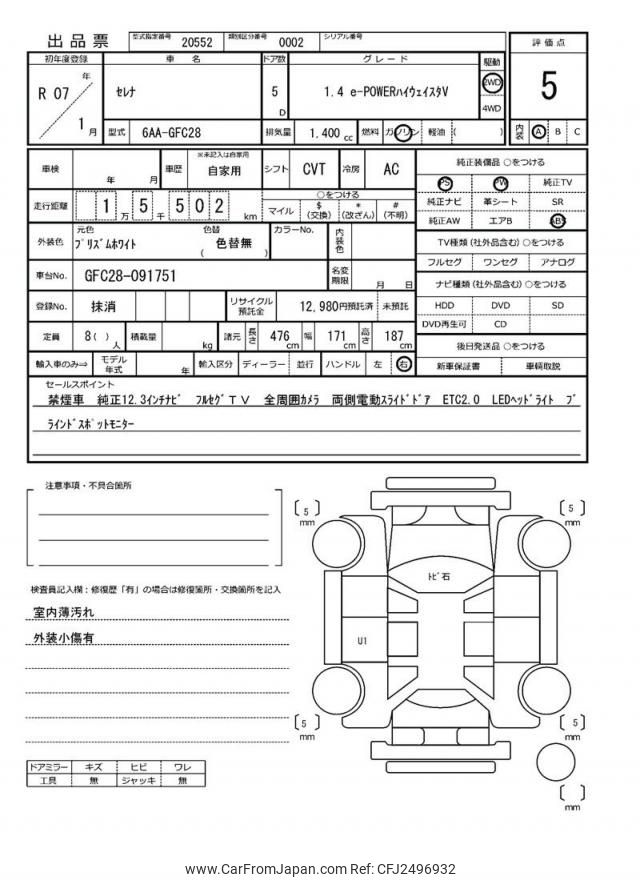 出品票 型式指定番号 20552 類別区分番号 0002 シリアル番号
初年度登録 車名 ドア数 グレード 駆動 評価点
R 07 年 1 月 セレナ 5 D 1.4 e-POWERハイウェイスタV 2WD 4WD 5
型式 6AA-GFC28 排気量 1.400 cc 燃料 ガソリン 軽油 ( ) 内装 A B C
車検 年 月 車歴 ※未記入は自家用 自家用 シフト CVT 冷房 AC 純正装備品 ○をつける
PS PW 純正TV
走行距離 1 万 5 千 502 km ○をつける
マイル $ (交換) * (改ざん) # (不明)
純正ナビ 革シート SR
純正AW エアB ABS
外装色 元色 プリズムホワイト 色替 ( 色替無 ) カラーNo. 内装色
TV種類 (社外品含む) ○をつける
フルセグ ワンセグ アナログ
車台No. GFC28-091751 名変期限 月 日
ナビ種類 (社外品含む) ○をつける
登録No. 抹消 リサイクル預託金 12,980円預託済 未預託
HDD DVD SD
DVD再生可 CD
定員 8( ) 人 積載量 kg 諸元 長さ 476 cm 幅 171 cm 高さ 187 cm
後日発送品 ○をつける
輸入車のみ⇒ モデル年式 年 輸入区分 ディーラー 並行 ハンドル 左 右 新車保証書 車輌取説
セールスポイント
禁煙車 純正12.3インチナビ フルセグTV 全周囲カメラ 両側電動スライドドア ETC2.0 LEDヘッドライト ブ
ラインドスポットモニター
注意事項・不具合箇所
5 mm
5 mm
トビ石
検査員記入欄：修復歴「有」の場合は修復箇所・交換箇所を記入
室内薄汚れ
外装小傷有
U1
5 mm
5 mm
ドアミラー キズ ヒビ ワレ
工具 無 ジャッキ 無
mm
www.CarFromJapan.com Ref: CFJ2496932